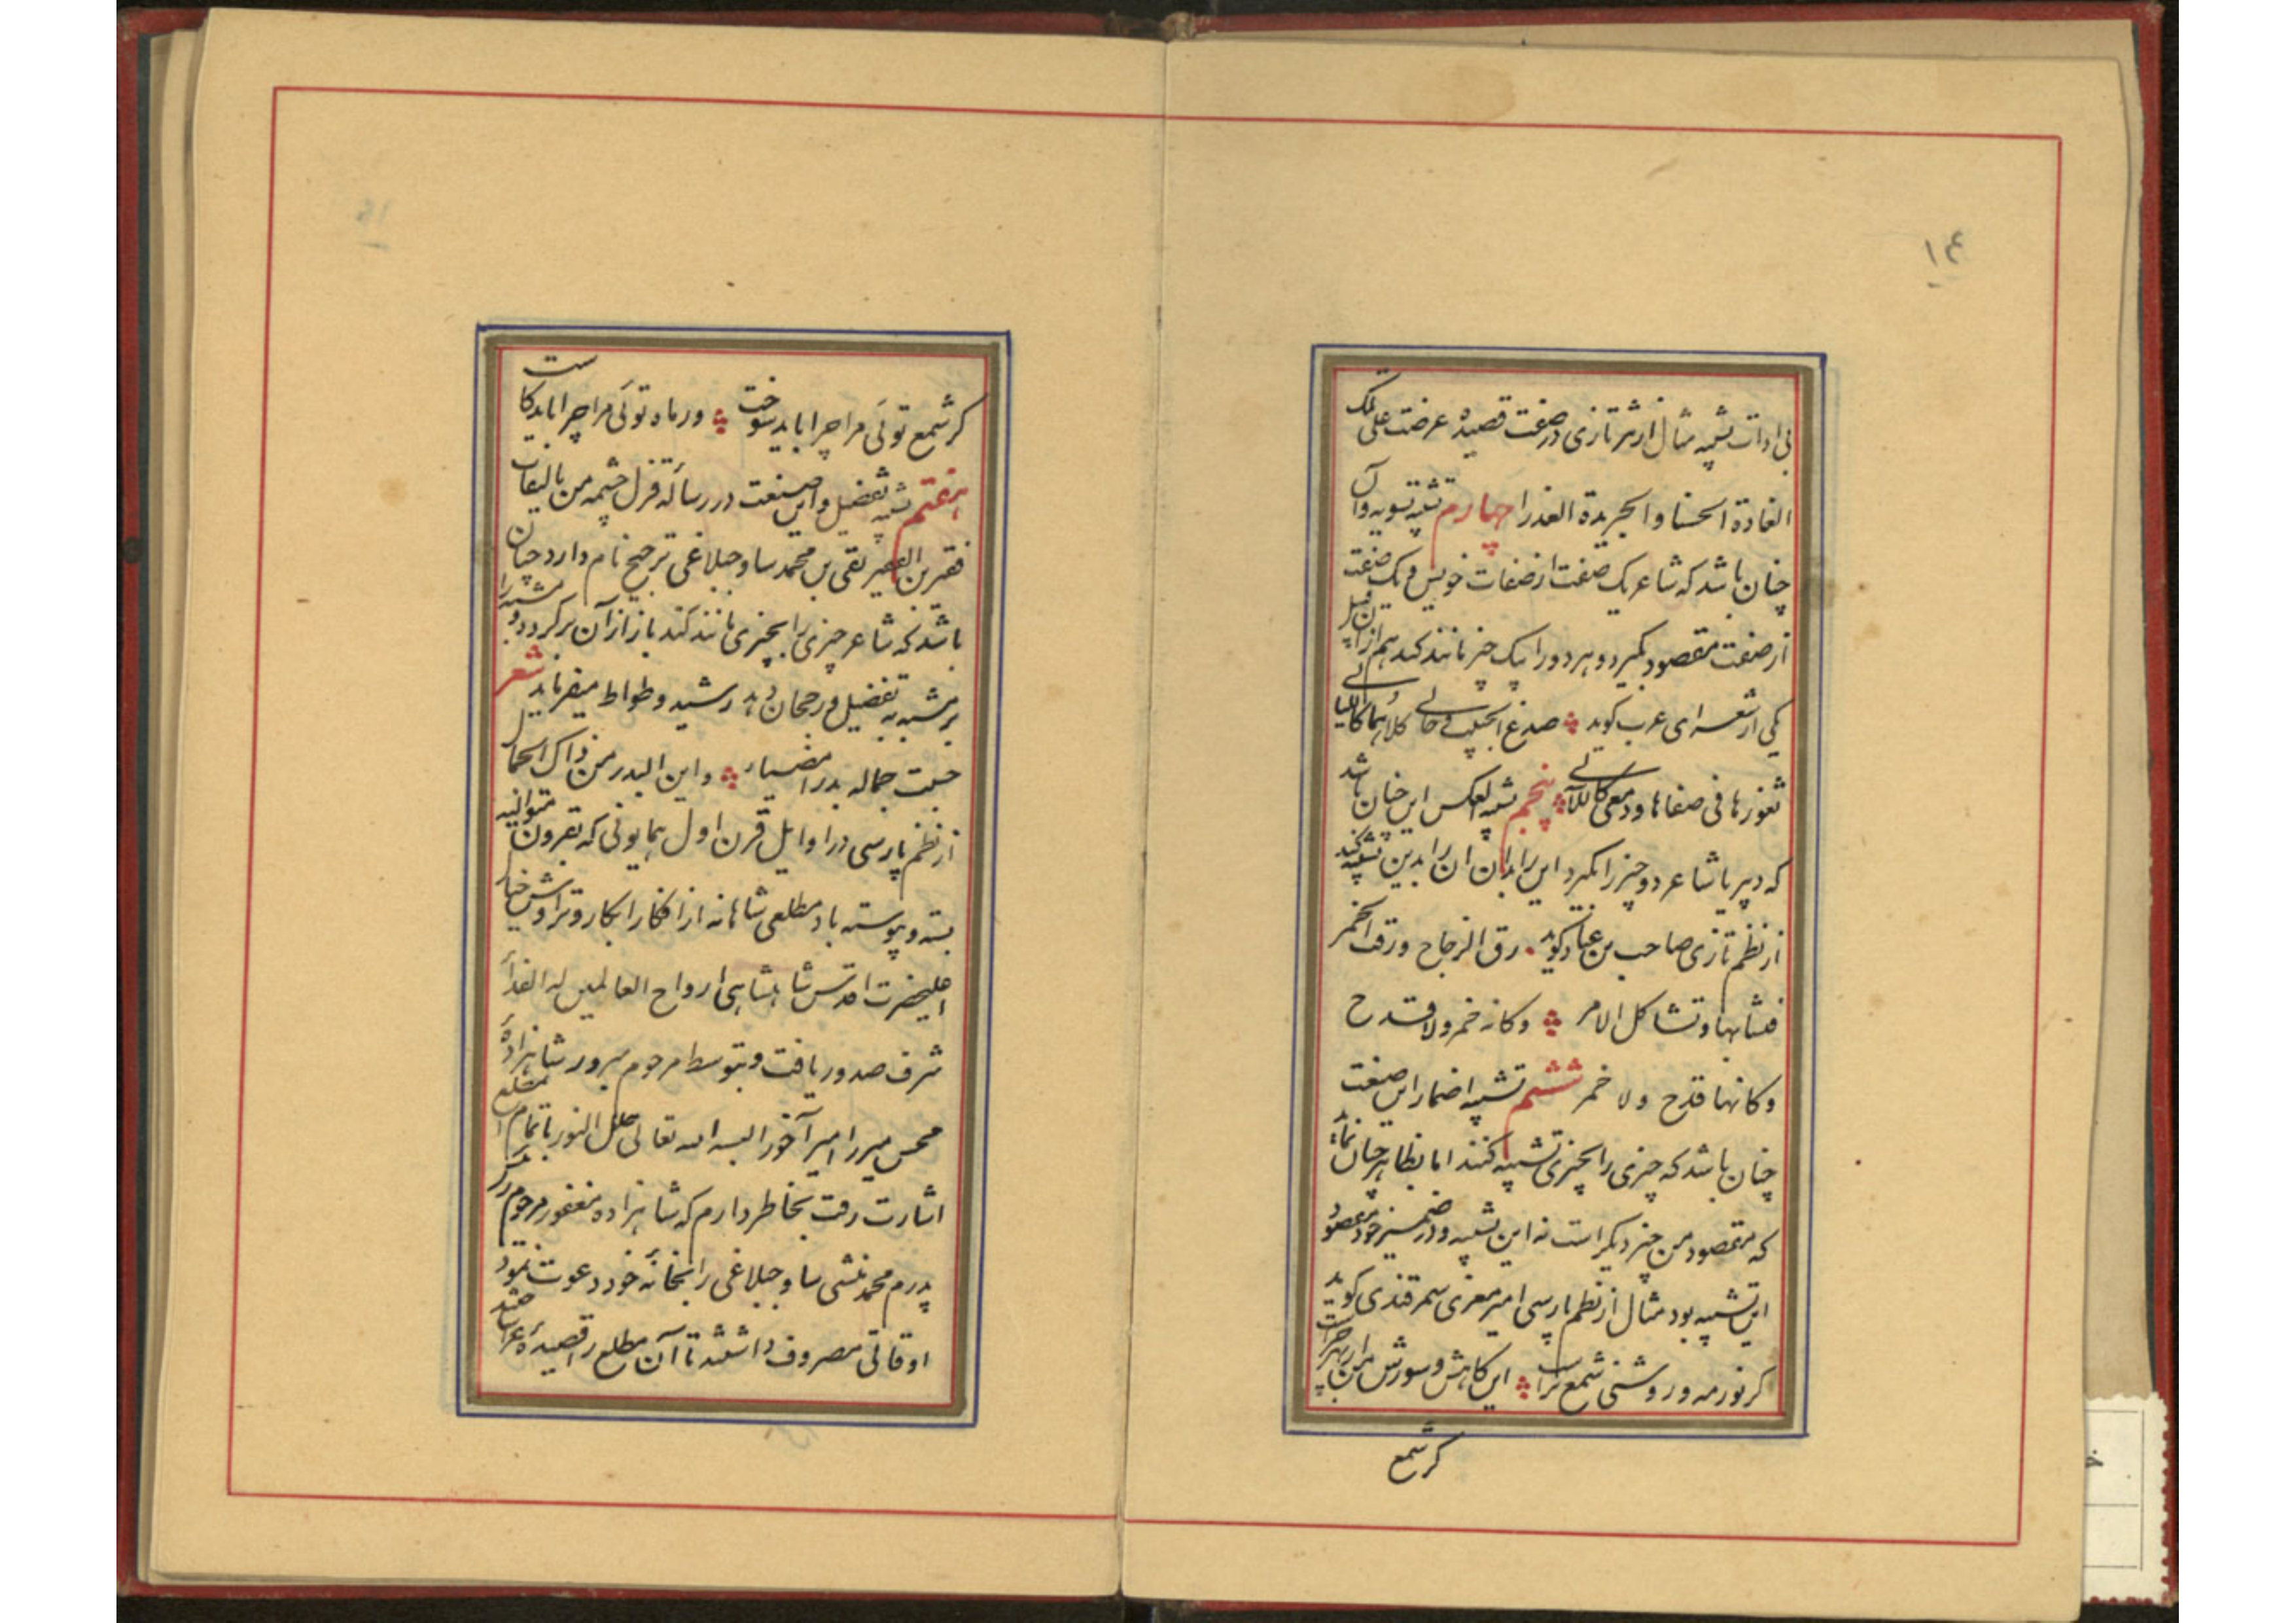 ۱۴
بی ادات تشبیه مثال از نثر تازی در صفت قصیده عرضت علی تلک
الغادة الحسنا و الجریدة العذرا چهارم تشبیه تسویه و آن
چنان باشد که شاعر یک صفت از صفات خویش و یک صفت
از صفت مقصود بگیرد و هر دو را بیک چیز مانند کند هم از این قبیل
یکی از شعرای عرب گوید صدغ الحبیب و حالی کلاهما کاللیالی
ثغورها فی صفاها و دمعی کاللآلی پنجم تشبیه العکس این چنان باشد
که دبیر یا شاعر دو چیز را بگیرد این را بدان آن را بدین تشبیه کند
از نظم تازی صاحب بن عباد گوید رق الزجاج و رقت الخمر
فتشابها و تشاکل الامر وکانه خمر ولا قدح
وکانها قدح ولا خمر ششم تشبیه اضمار این صنعت
چنان باشد که چیزی را بچیزی تشبیه کنند اما بظاهر چنان نماید
که مقصود من چیز دیگر است نه این تشبیه و در ضمیر خود مقصود
این تشبیه بود مثال از نظم پارسی امیر معزی سمرقندی گوید
گر نور مه و روشنی شمع تراست این کاهش و سوزش من از بهر چراست
گر شمع
گر شمع توئی مرا چرا باید سوخت ور ماه توئی مرا چرا باید کاست
هفتم تشبیه تفضیل و این صنعت در رساله قزل چشمه من تالیفات
فقیر بن الفقیر تقی بن محمد ساوجبلاغی ترجیح نام دارد چنان
باشد که شاعر چیزی را بچیزی مانند کند باز از آن برگردد و مشبه را
بر مشبه به تفضیل و رجحان دهد رشید وطواط میفرماید شعر
حسبت جماله بدرا مضیئا و این البدر من ذاک الجمال
از نظم پارسی در اوایل قرن اول همایونی که بقرون متوالیه
بسته و پیوسته باد مطلعی شاهانه از افکار ابکار و تراوش خیال
اعلیحضرت اقدس شاهنشاهی ارواح العالمین له الفدآء
شرف صدور یافت و بتوسط مرحوم مبرور شاهزاده
محسن میرزا امیر آخور البسه الله تعالی حلل النور باتمام آن مطلع
اشارت رفت بخاطر دارم که شاهزاده مغفور مرحوم
پدرم محمد منشی ساوجبلاغی را بخانه خود دعوت نمود
اوقاتی مصروف داشتند تا آن مطلع را قصیده غرا ساختند